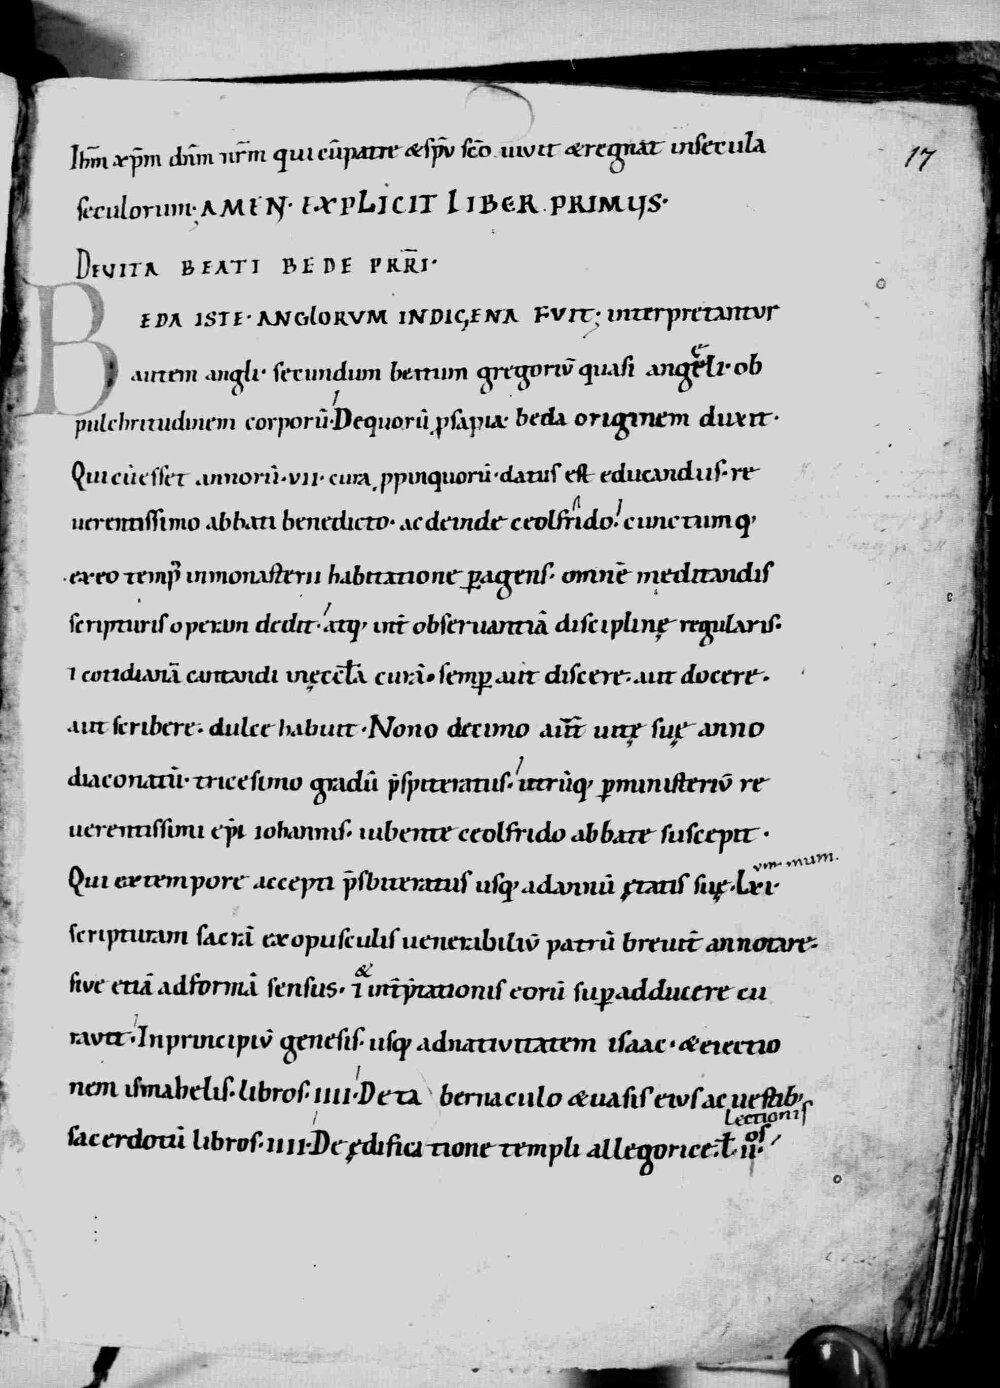 17
Ihm̄ xp̄m dn̄m nr̄m qui cū patre & sp̄u sc̄o uiuit & regnat in secula
seculorum· AMEN· EXPLICIT LIBER PRIMUS·
DE VITA BEATI BEDE PRR̄I·
BEDA ISTE· ANGLORVM INDIGENA FVIT; interpretantur
autem angli· secundum beatum gregoriū quasi angęli· ob
pulchritudinem corporū· De quorū ꝓsapia beda originem duxit·
Qui cū esset annorū· vii· cura ꝓpinquorū· datus est educandus· re
uerentissimo abbati benedicto· ac deinde ceolfrido· cunctumq;
ex eo temp̄ in monasterii habitatione ꝑagens· omnē meditandis
scripturis operam dedit· atq; int̄ obseruantiā disciplinę regularis·
⁊ cotidianā cantandi in ęcc̄ta curā· semꝑ aut discere· aut docere·
aut scribere· dulce habuit· Nono decimo aūt uitę suę anno
diaconatū· tricesimo gradū p̄spiteratus· utrūq; ꝑ ministeriū re
uerentissimi ep̄i iohannis· iubente ceolfrido abbate suscepit·
Qui ex tempore accepti p̄sbiteratus usq; ad annū ętatis suę· Lxi·
scripturam sacrā ex opusculis uenerabiliū patrū breuit̄ annotare·
siue etiā ad formā sensus· & ⁊ int̄p̄tationis eorū suꝑadducere cu
rauit· In principiū genesis· usq; ad natiuitatem isaac· & eiectio
nem ismahelis· libros· iiii· De ta bernaculo & uasis eius ac uestib;
sacerdotū libros· iiii· De ędifica tione templi allegorice· lectionis ł· ii· os